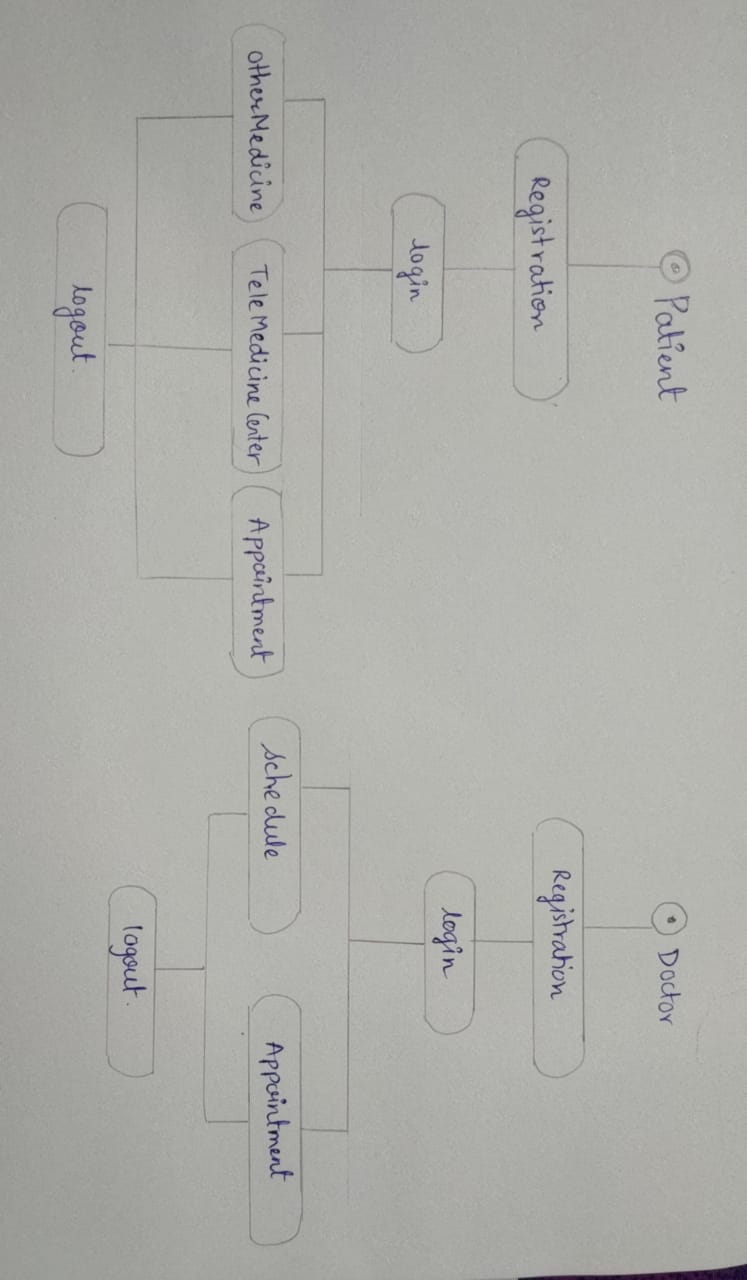 Patient
Registration
login
otherMedicine
TeleMedicine Center
Appointment
logout.
Doctor
Registration
login
schedule
Appointment
logout.